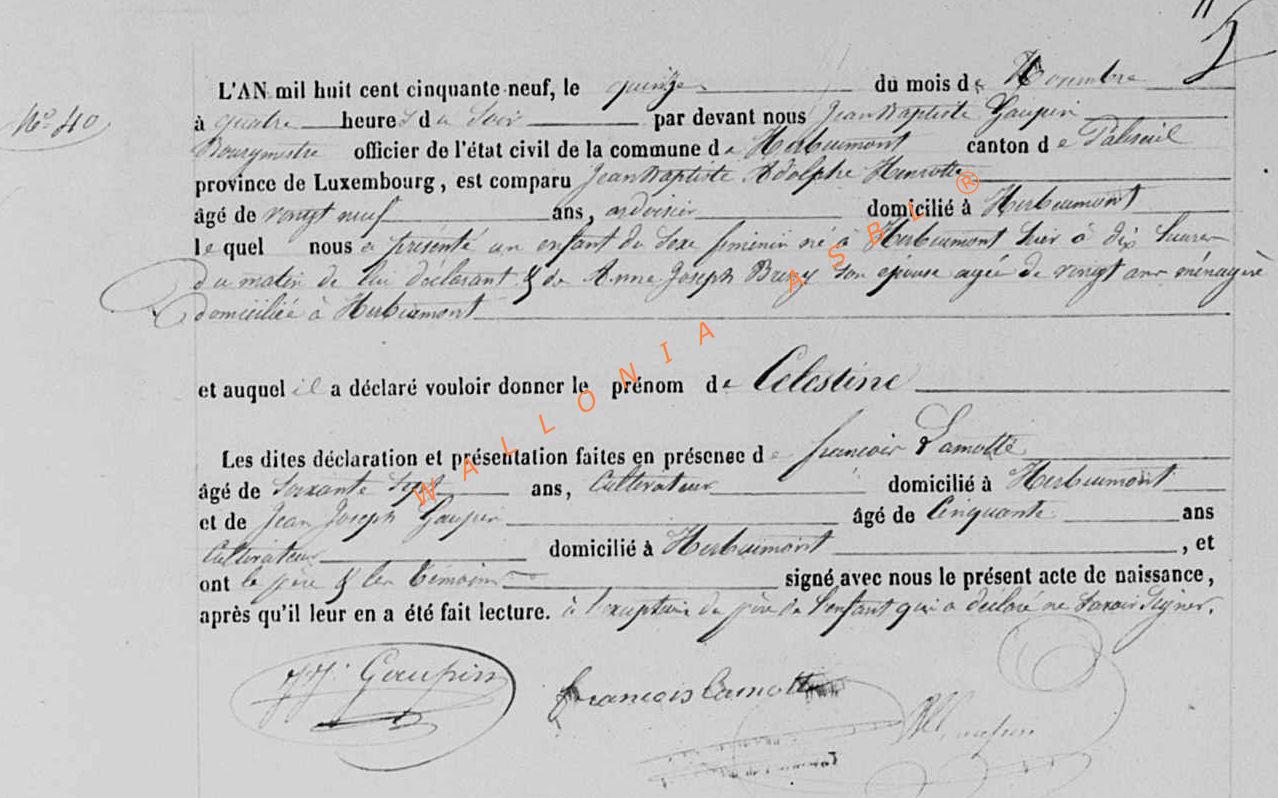 5
L'AN mil huit cent cinquante neuf, le quinze du mois de Novembre
N° 40
à quatre heures du soir par devant nous Jean Baptiste Gaupin
Bourgmestre officier de l'état civil de la commune de Herbeumont canton de Paliseul
province de Luxembourg, est comparu Jean Baptiste Adolphe Henrotte
âgé de vingt neuf ans, ardoisier domicilié à Herbeumont
lequel nous a présenté un enfant du sexe feminin né à Herbeumont hier à dix heures
du matin de lui déclarant & de Anne Joseph son epouse agée de vingt ans ménagère
domiciliée à Herbeumont
et auquel il a déclaré vouloir donner le prénom de Celestine
Les dites déclaration et présentation faites en présence de francois Lamotte
âgé de Soixante ans, Cultivateur domicilié à Herbeumont
et de Jean Joseph Gaupin âgé de Cinquante ans
Cultivateur domicilié à Herbeumont, et
ont le père & les témoins signé avec nous le présent acte de naissance,
après qu'il leur en a été fait lecture. à l'exception du père de l'enfant qui a déclaré ne savoir signer.
JJ. Gaupin francois Lamotte
WALLONIA ASBL ®